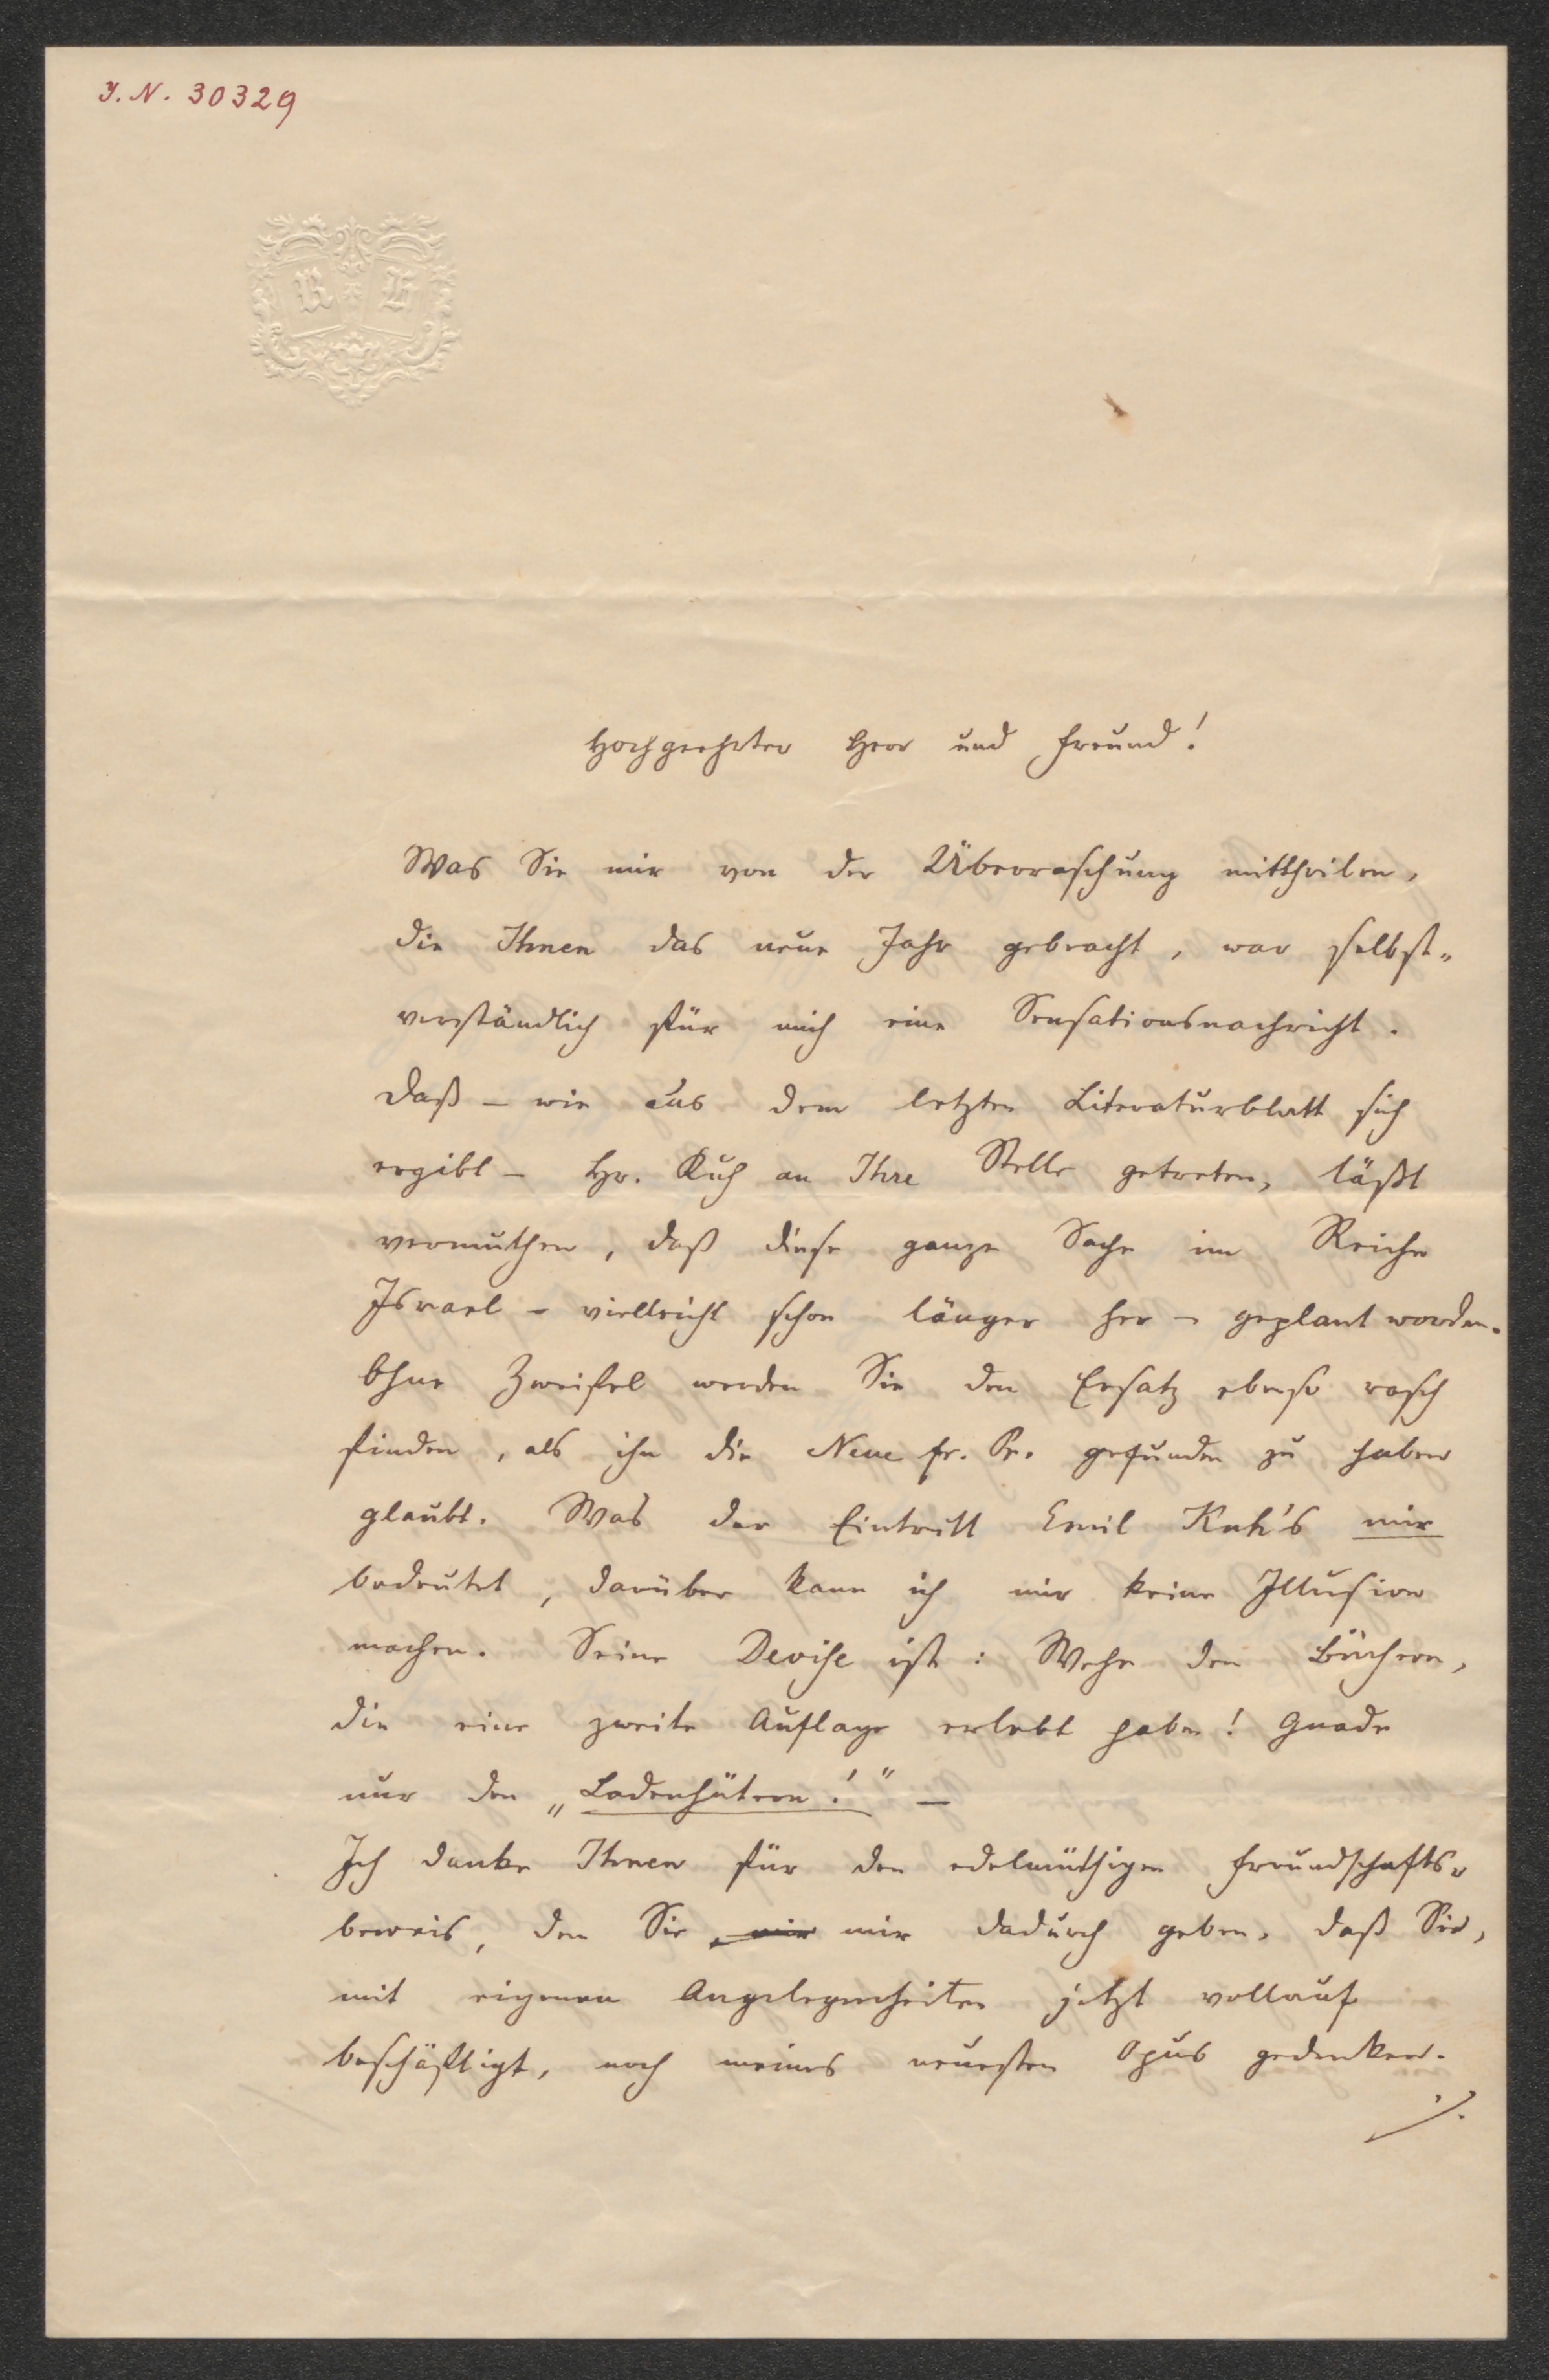 I. N. 30329
R H
Hochgeehrter Herr und Freund!
Was Sie mir von der Überraschung mittheilen,
die Ihnen das neue Jahr gebracht, war selbst-
verständlich für mich eine Sensationsnachricht.
Daß – wie aus dem letzten Literaturblatt sich
ergibt – Hr. Kuh an Ihre Stelle getreten, läßt
vermuthen, daß diese ganze Sache im Reiche
Israel – vielleicht schon länger her – geplant worden.
Ohne Zweifel werden Sie den Ersatz ebenso rasch
finden, als ihn die Neue fr. Pr. gefunden zu haben
glaubt. Was der Eintritt Emil Kuh's mir
bedeutet, darüber kann ich mir keine Illusion
machen. Seine Devise ist: Wehe den Büchern,
die eine zweite Auflage erlebt haben! Gnade
nur den „Ladenhütern!" –
Ich danke Ihnen für den edelmüthigen Freundschafts-
beweis, den Sie mir mir dadurch geben, daß Sie,
mit eigenen Angelegenheiten jetzt vollauf
beschäftigt, noch meines neuesten Opus gedenken.
./.